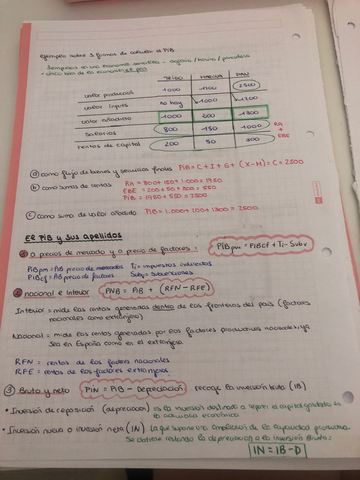 Ejemplo sobre 3 formas de calcular el PiB
único bien de la economía el pan
TRIGO HARINA PAN
valor producción 1000 1200 2500
valor inputs no hay 1000 1200
valor añadido 1000 200 1300
salarios 800 150 1000
rentas de capital 200 50 300
RA + EBE
a) como flujo de bienes y servicios finales PiB = C + I + G + (X-M) = C = 2500
b) como sumas de rentas RA = 800 + 150 + 1.000 = 1950
EBE = 200 + 50 + 300 = 550
PiB = 1950 + 550 = 2500
c) como suma de valor añadido PiB = 1.000 + 200 + 1300 = 2500
El PiB y sus apellidos
1 a precios de mercado y a precio de factores: PiBpm = PiBcf + Ti - Subv
PiBpm = PiB precio de mercados Ti = impuestos indirectos
PiBcf = PiB precio de factores Subv = subvenciones
2 nacional e interior PNB = PiB + (RFN - RFE)
Interior = mide las rentas generadas dentro de las fronteras del país (factores
nacionales como extranjeros)
Nacional = mide las rentas generadas por los factores productivos nacionales ya
sea en España como en el extranjero
RFN = rentas de los factores nacionales
RFE = rentas de los factores extranjeros
3 Bruto y neto PiN = PiB - depreciación recoge la inversión bruta (IB)
• Inversión de reposición (depreciación) es la inversión destinada a reponer el capital gastado en
la actividad económica
• Inversión nueva o inversión neta (IN) la que supone una ampliación de la capacidad productiva
Se obtiene restando la depreciación a la inversión bruta:
IN = IB - D